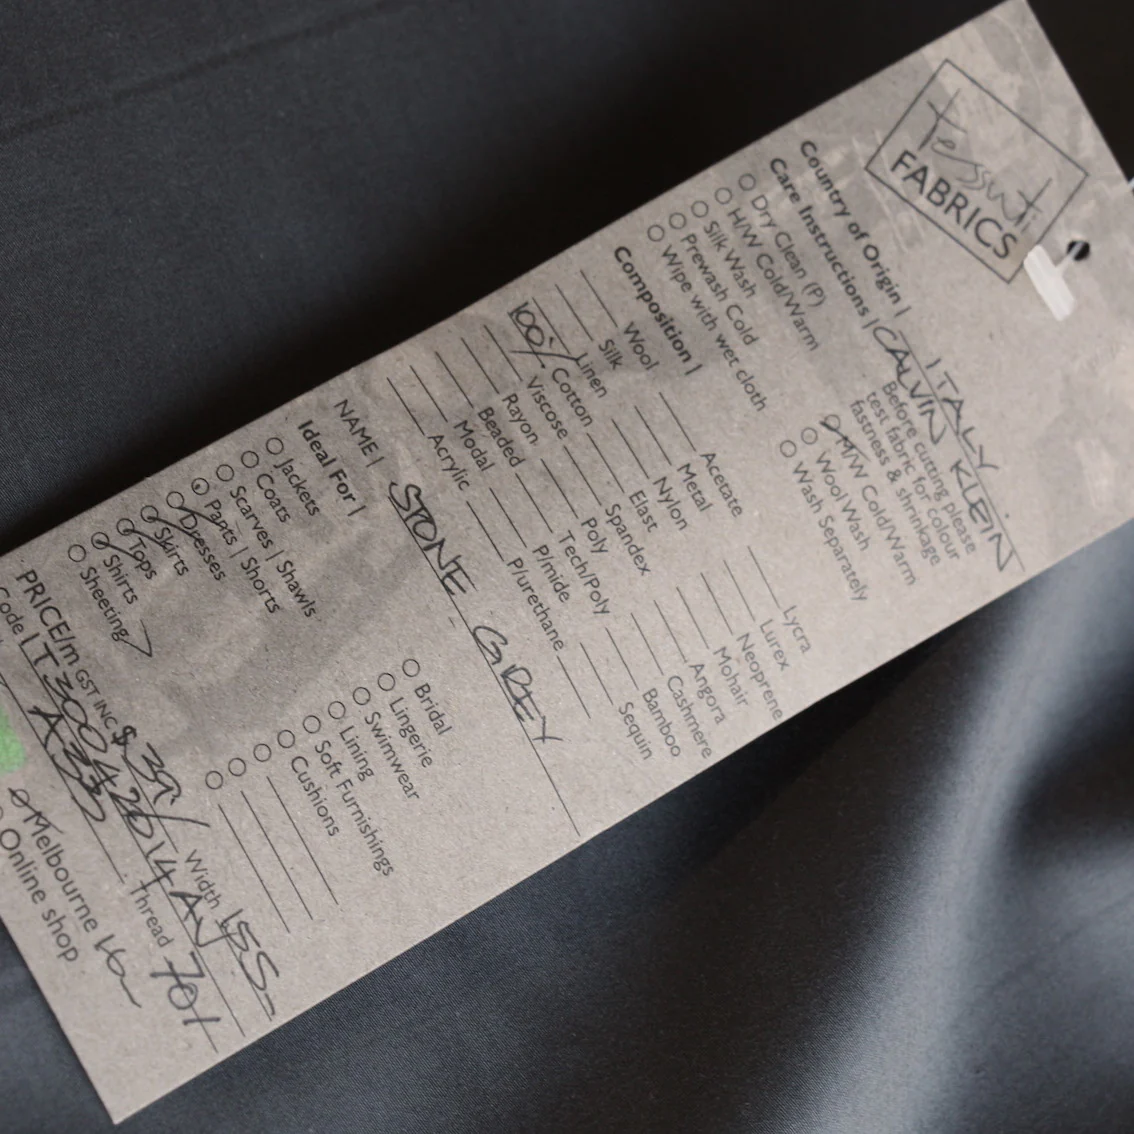 Tessuti
FABRICS
Country of Origin | ITALY
Care Instructions | CALVIN KLEIN
Dry Clean (P)
H/W Cold/Warm
Silk Wash
Prewash Cold
Wipe with wet cloth
Before cutting please
test fabric for colour
fastness & shrinkage
M/W Cold/Warm
Wool Wash
Wash Separately
Composition |
Wool
Silk
Linen
100% Cotton
Viscose
Rayon
Beaded
Modal
Acrylic
Acetate
Metal
Nylon
Elast
Spandex
Poly
Tech/Poly
P/mide
P/urethane
Lycra
Lurex
Neoprene
Mohair
Angora
Cashmere
Bamboo
Sequin
NAME | STONE GREY
Ideal For |
Jackets
Coats
Scarves | Shawls
Pants | Shorts
Dresses
Skirts
Tops
Shirts
Sheeting
Bridal
Lingerie
Swimwear
Lining
Soft Furnishings
Cushions
PRICE/m GST INC $39/ Width 155
Code | Thread 701
Melbourne
Online shop